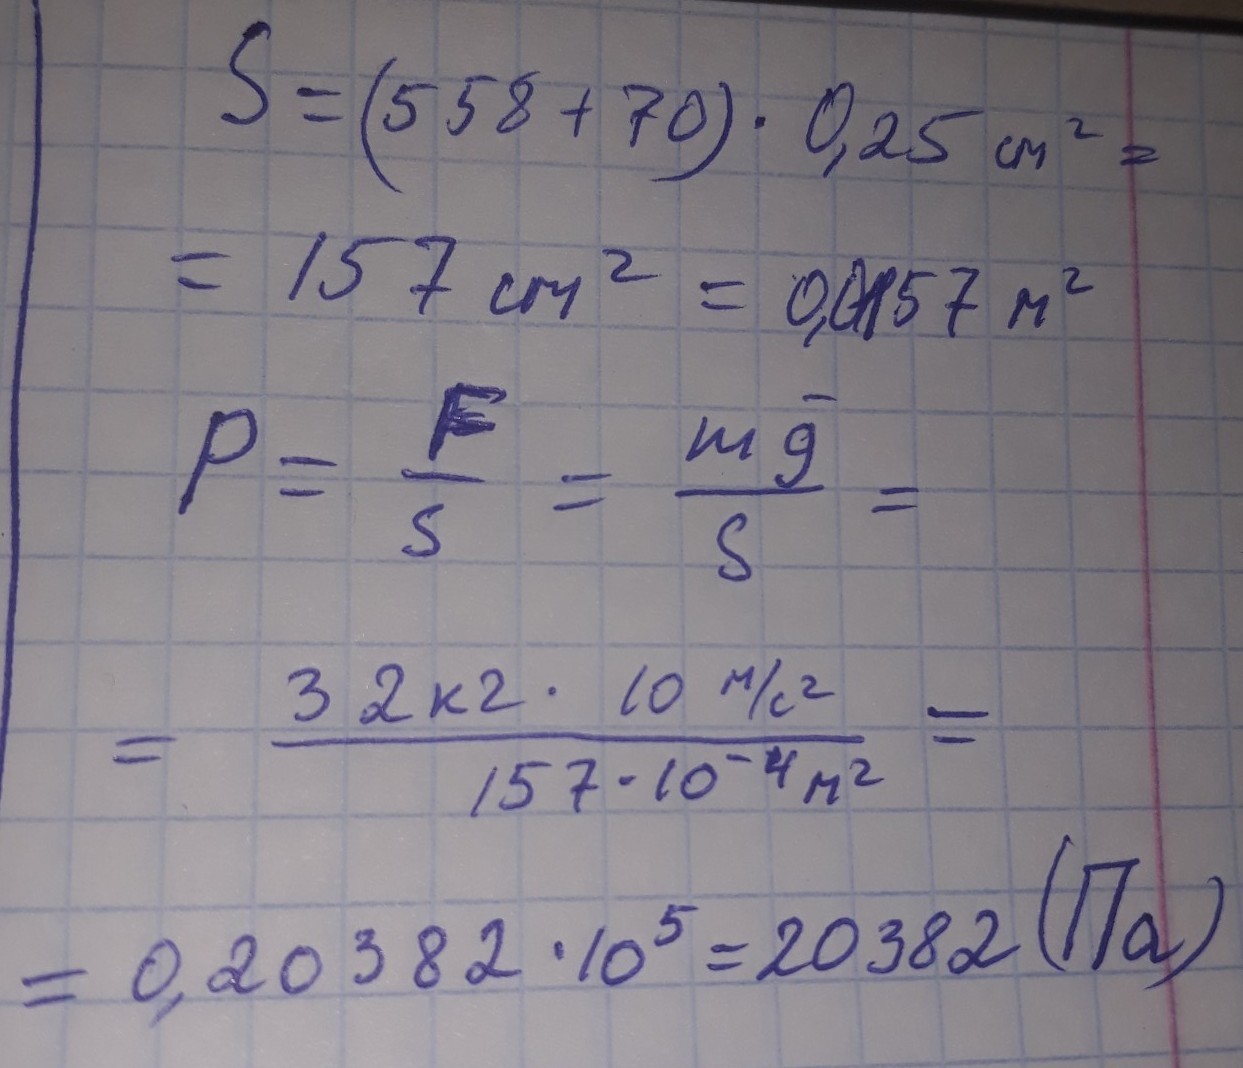 S = (558 + 70) · 0,25 см² =
= 157 см² = 0,0157 м²
P = F/S = mg/S =
= 32кг · 10 м/с² / 157 · 10⁻⁴ м² =
= 0,20382 · 10⁵ = 20382 (Па)